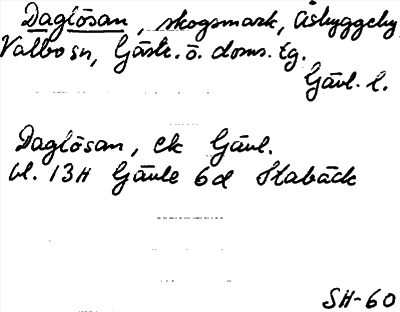 Daglösan, skogsmark, Åsbyggeby,
Valbo sn, Gästr. ö. doms. tg.
Gävl. l.
Daglösan, ek Gävl.
bl. 13H Gävle 6d Stabäck
SH-60